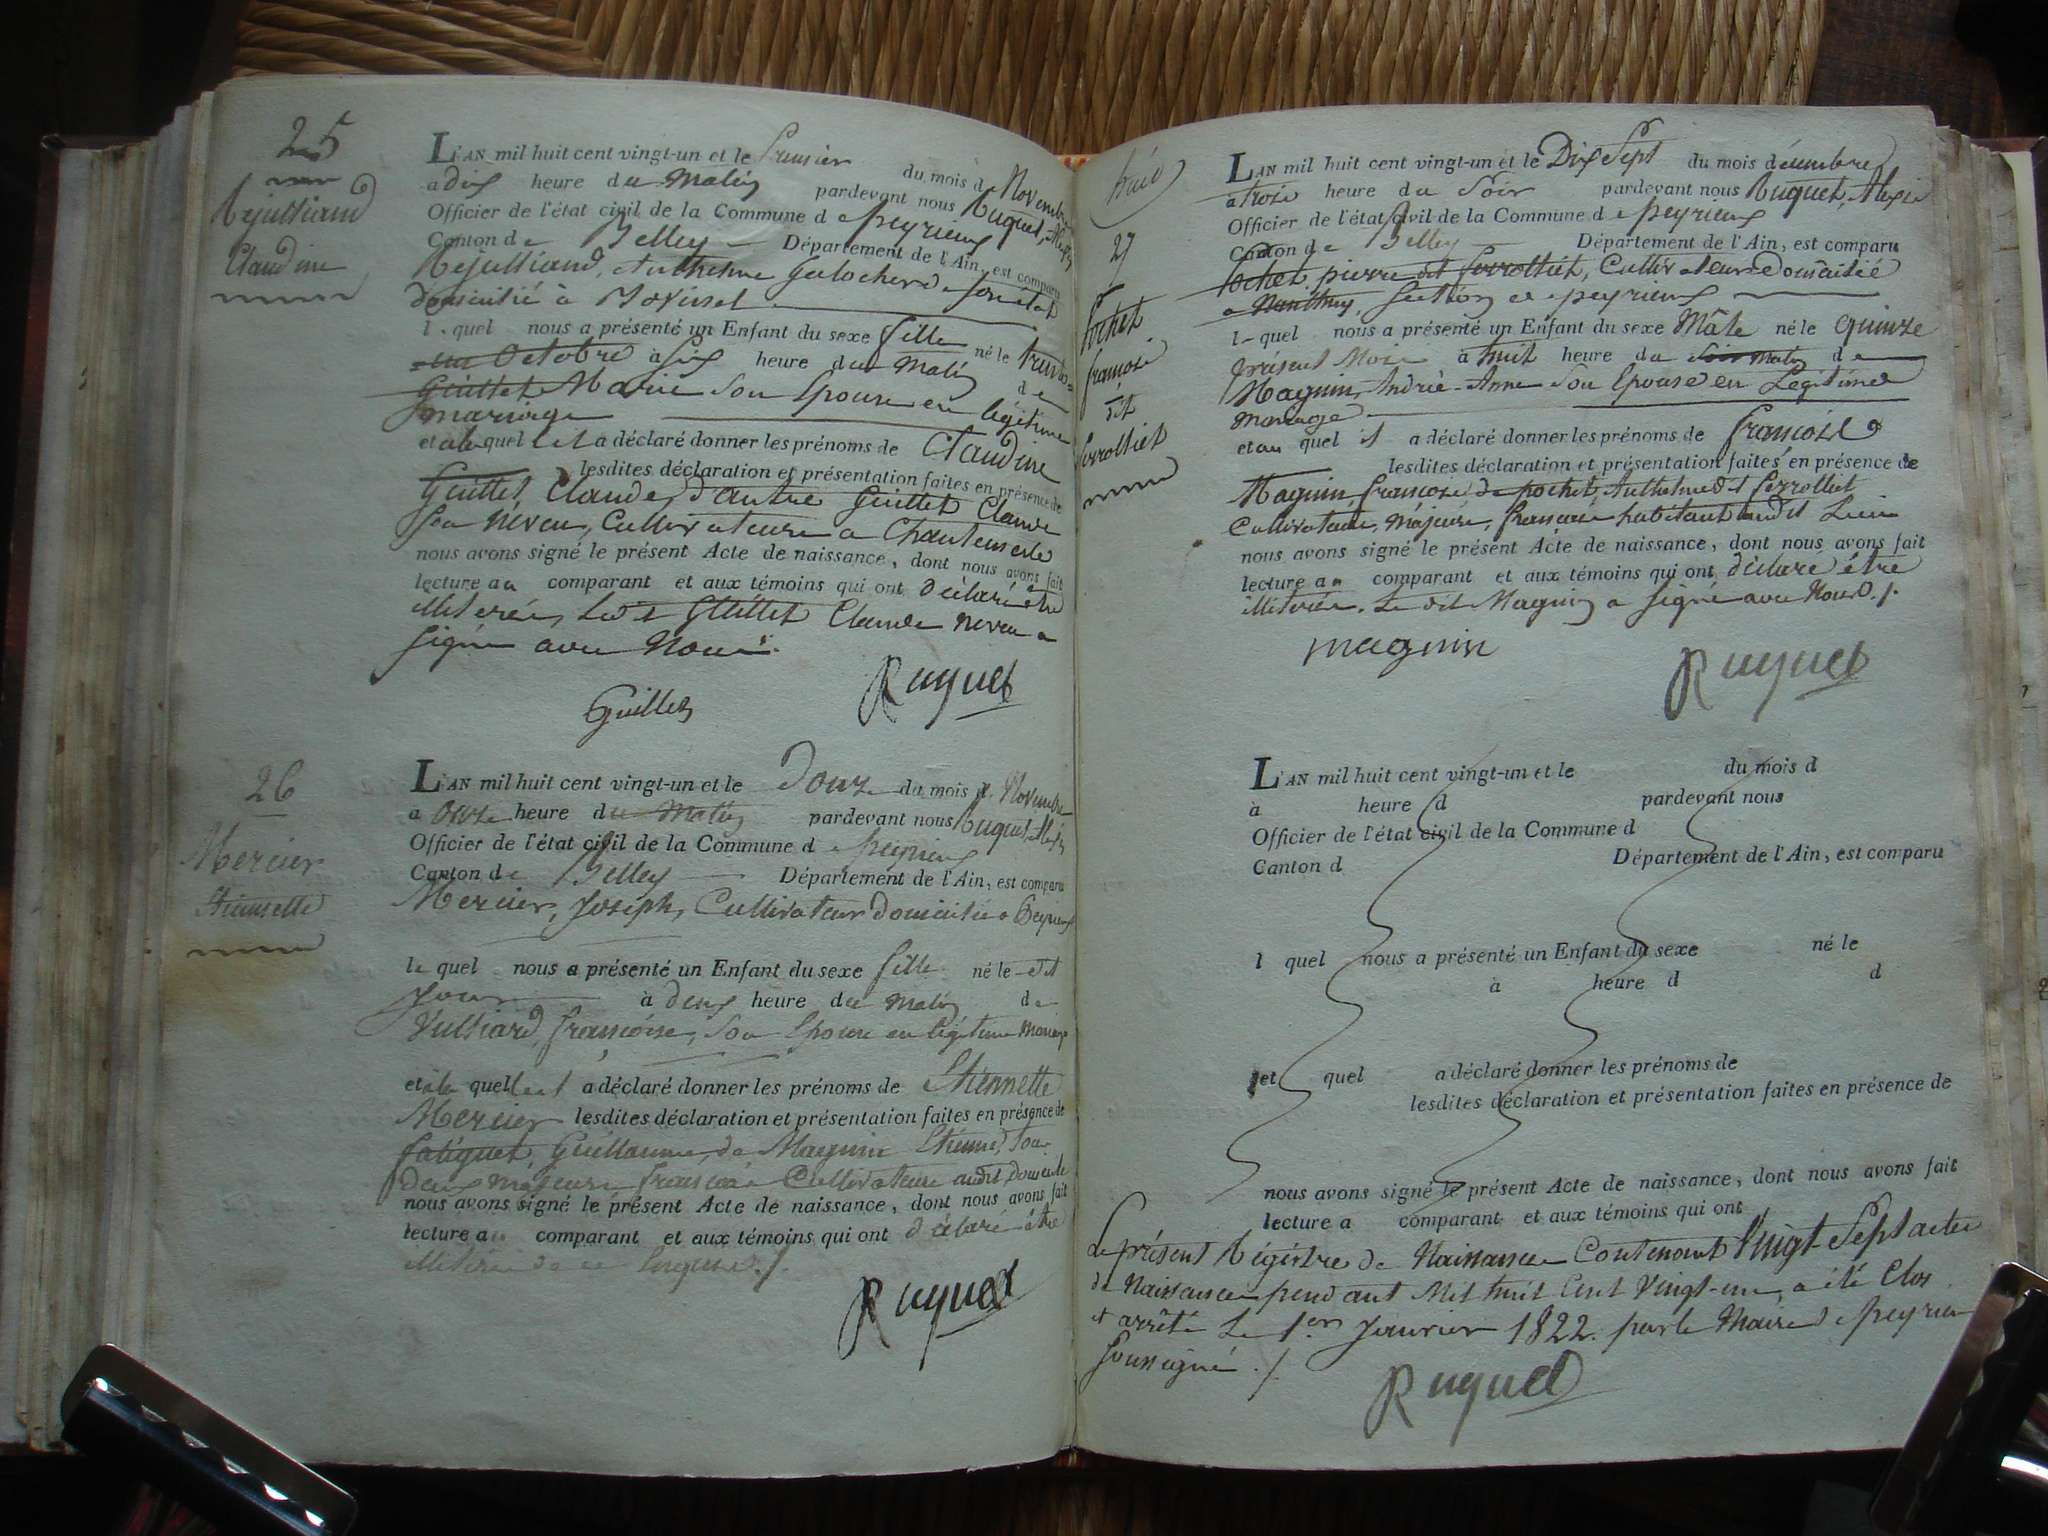 25
Rejulliand
Claudine
L'AN mil huit cent vingt-un et le premier du mois de Novembre
a dix heure du Matin pardevant nous Ruquet, Alexis
Officier de l'état civil de la Commune de peyrieux
Canton de Belley Département de l'Ain, est comparu
Rejulliand, Anthelme
domicilié à
l quel nous a présenté un Enfant du sexe fille né le trente
un Octobre à six heure du Matin de
Guillet Marie son Epouse en légitime
mariage
et à la quel il a déclaré donner les prénoms de Claudine
lesdites déclaration et présentation faites en présence de
Guillet, Claude, d'autre Guillet Claude
son Neveu, Cultivateurs a Chantemerle
nous avons signé le présent Acte de naissance, dont nous avons fait
lecture au comparant et aux témoins qui ont Déclaré être
illiterés, Ledit Guillet Claude neveu a
signé avec Nous.
Guillet
Ruquet
26
Mercier
Etiennette
L'AN mil huit cent vingt-un et le Douze du mois de Novembre
a Onze heure du Matin pardevant nous Ruquet, Alexis
Officier de l'état civil de la Commune de peyrieux
Canton de Belley Département de l'Ain, est comparu
Mercier, Joseph, Cultivateur domicilié a Peyrieux
le quel nous a présenté un Enfant du sexe fille né le dit
Jour à deux heure du matin de
Vulliard, françoise, son Epouse en légitime Mariage
et à la quelle il a déclaré donner les prénoms de Etiennette
Mercier lesdites déclaration et présentation faites en présence de
Guillaume, de Magnin Etienne, tous
deux majeurs français Cultivateurs audit
nous avons signé le présent Acte de naissance, dont nous avons fait
lecture au comparant et aux témoins qui ont déclaré être
illiterés de ce enquis ./.
Ruquet
27
pochet
françois
dit
perrolliet
L'AN mil huit cent vingt-un et le Dix Sept du mois décembre
a trois heure du Soir pardevant nous Ruquet, Alexis
Officier de l'état civil de la Commune de peyrieux
Canton de Belley Département de l'Ain, est comparu
pochet, pierre dit perrolliet, Cultivateur domicilié
a Nanthuy, section de peyrieux
l quel nous a présenté un Enfant du sexe Mâle né le quinze
présent Mois à huit heure du Soir Matin de
Magnin, Andrié-Anne son Epouse en Légitime
Mariage
et au quel il a déclaré donner les prénoms de françois
lesdites déclaration et présentation faites en présence de
Magnin, françois, de pochet, Anthelme dit perrolliet
Cultivateurs, Majeurs, français habitant audit Lieu
nous avons signé le présent Acte de naissance, dont nous avons fait
lecture au comparant et aux témoins qui ont déclaré être
illiterés. Le dit Magnin a signé avec Nous ./.
magnin
Ruquet
L'AN mil huit cent vingt-un et le du mois d
à heure d pardevant nous
Officier de l'état civil de la Commune d
Canton d Département de l'Ain, est comparu
l quel nous a présenté un Enfant du sexe né le
à heure d d
et quel a déclaré donner les prénoms de
lesdites déclaration et présentation faites en présence de
nous avons signé le présent Acte de naissance, dont nous avons fait
lecture a comparant et aux témoins qui ont
Le présent Régistre de Naissance Contenant Vingt-Sept actes
de Naissance pendant Mil huit Cent Vingt-un, a été Clos
et arrêté Le 1er Janvier 1822. par le Maire de peyrieu
soussigné ./.
Ruquet